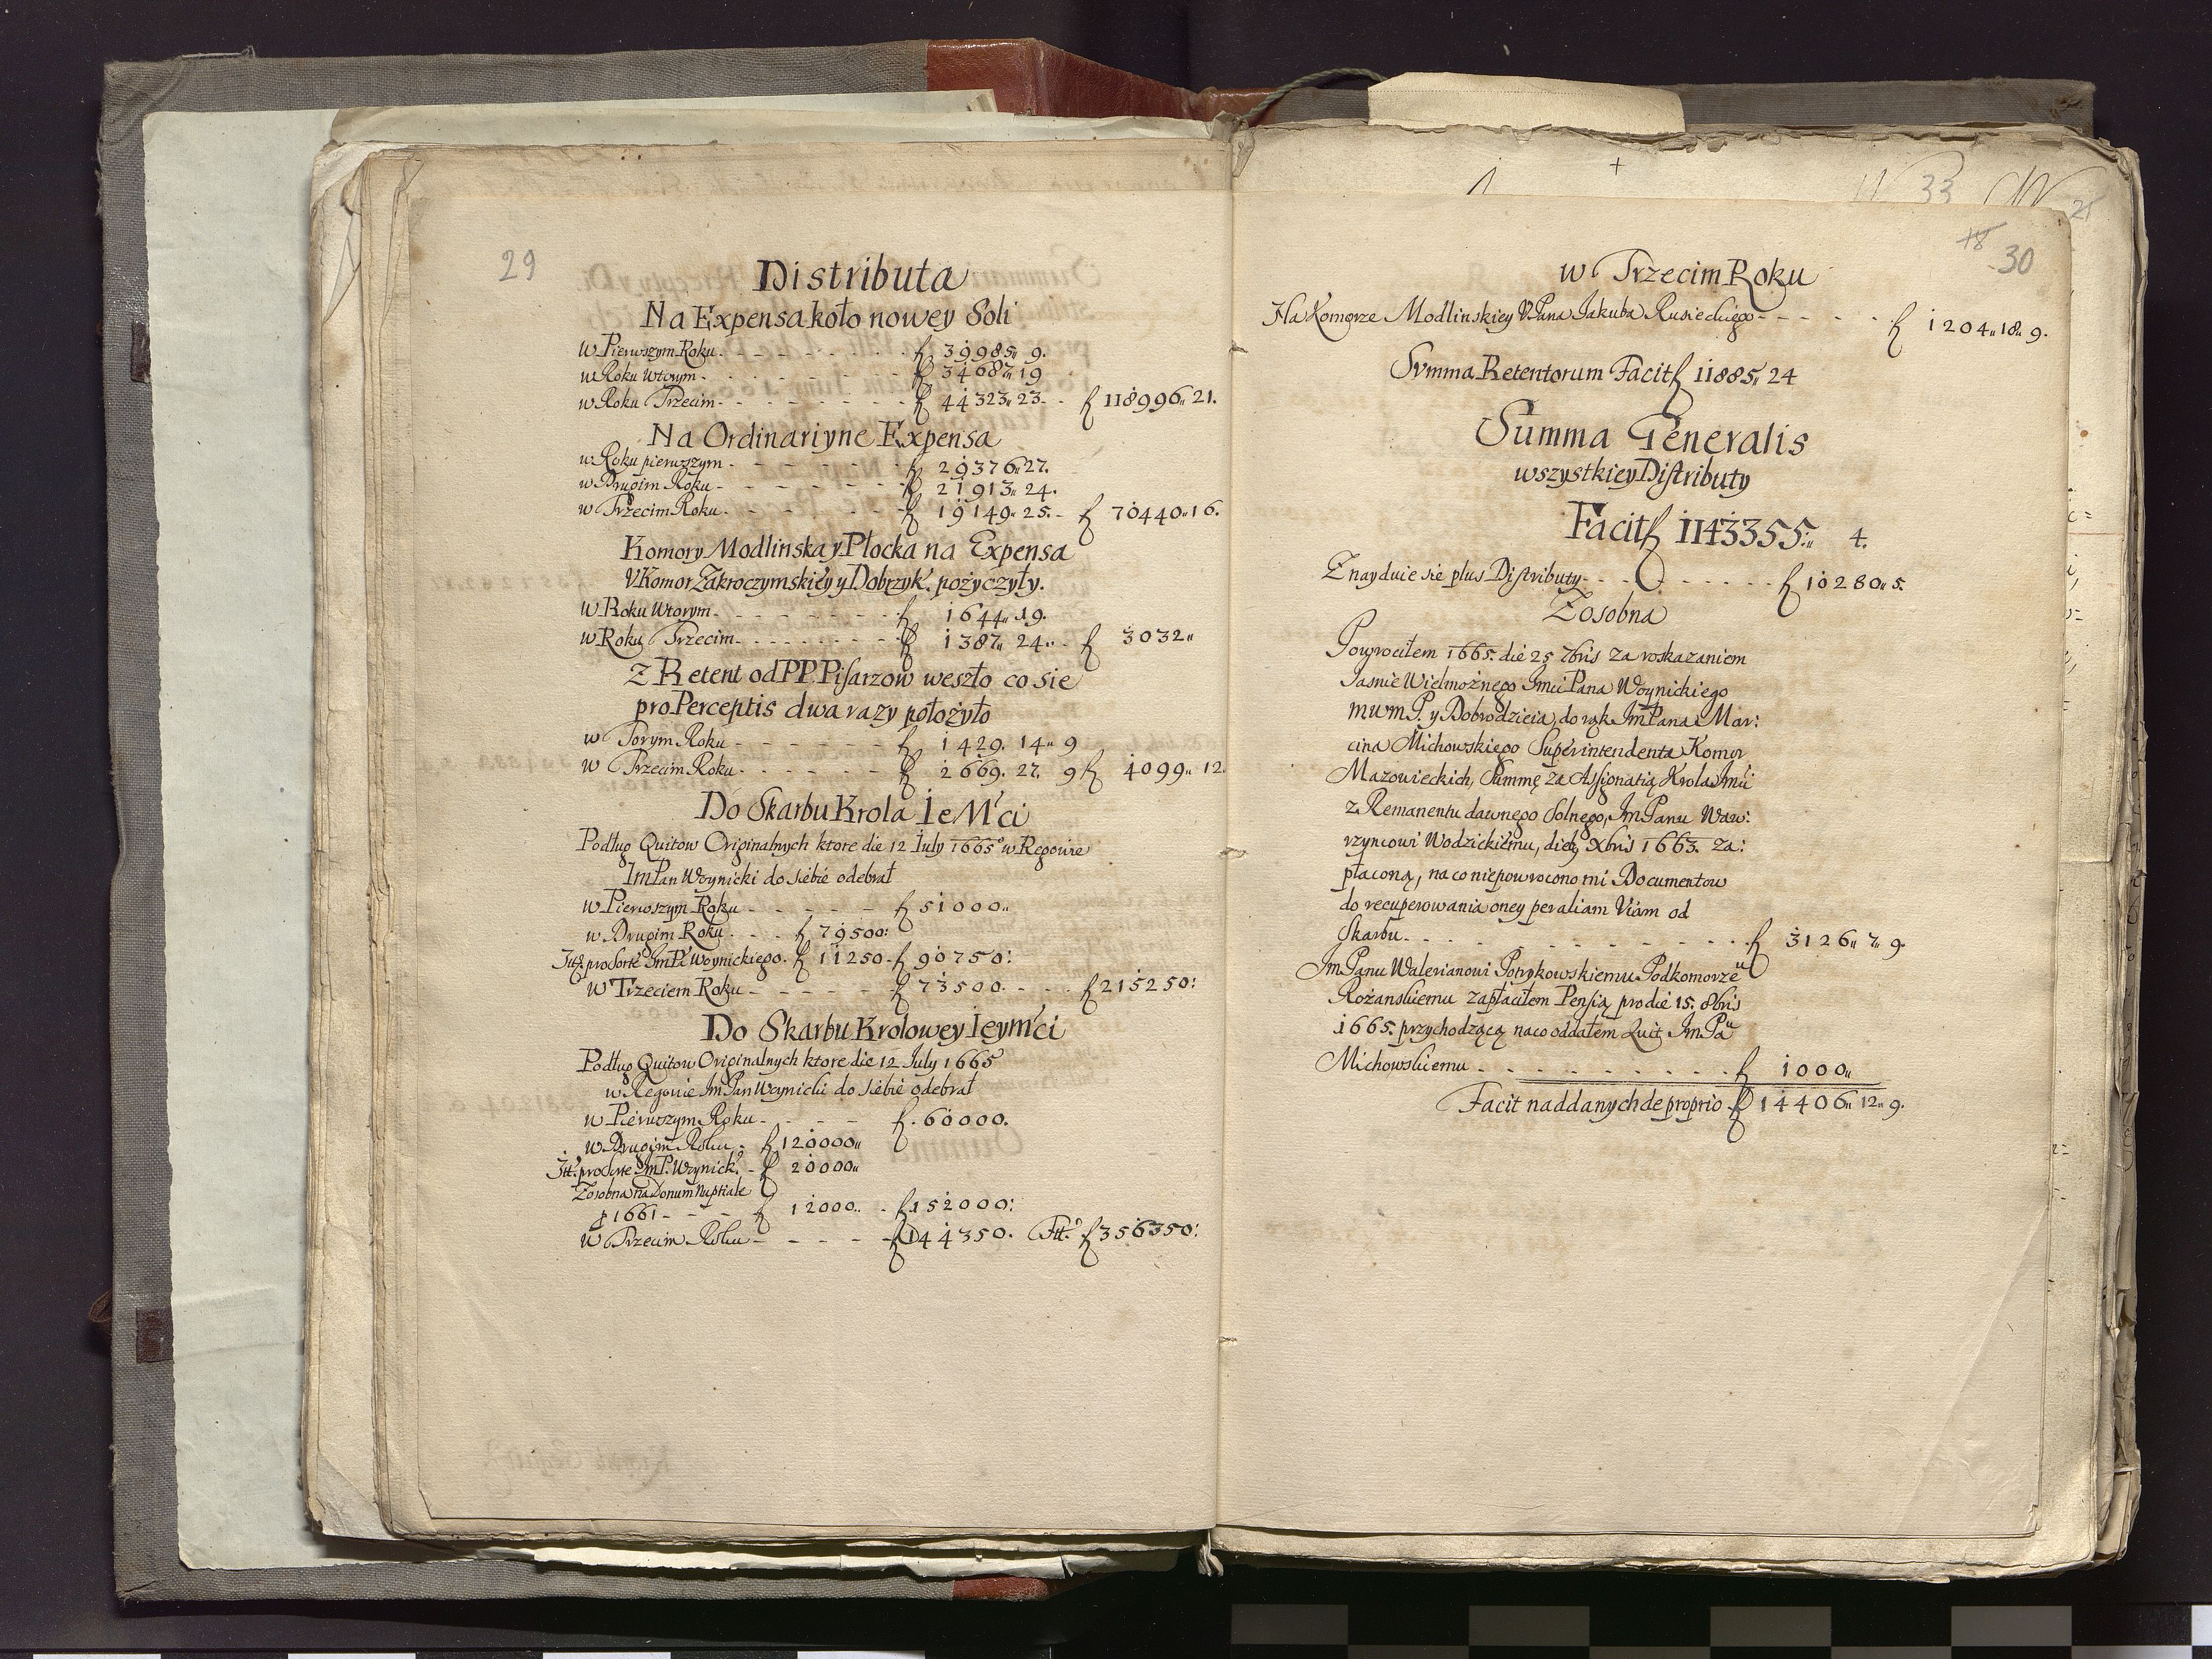 29
Distributa
Na Expensa koło nowey Soli
W Pierwszym Roku - - - - - - - f 39985" 9.
w Roku Wtorym - - - - - - - f 34687" 19
w Roku Trzecim - - - - - - - f 44323" 23 - - f 118996" 21.
Na Ordinariyne Expensa
w Roku pierwszym - - - - - - - f 29376" 27.
w Drugim Roku - - - - - - - f 21913" 24.
w Trzecim Roku - - - - - - - f 19149" 25. - f 70440" 16.
Komory Modlinska y Płocka na Expensa
V Komor Zakroczymskiey y Dobrzyk. pożyczyły.
W Roku Wtorym - - - - - - - f 1644" 19.
w Roku Trzecim - - - - - - - f 1387" 24" - f 3032"
Z Retent od PP. Pisarzow weszło co sie
pro Perceptis dwa razy położyło
w Torym Roku - - - - - - f 1429. 14" 9
w Trzecim Roku - - - - - - f 2669. 27. 9 f 4099" 12.
Do Skarbu Krola Je Mci
Podług Quitow Originalnych ktore die 12 July 1665 w Regowie
Im Pan Woynicki do siebie odebrał
w Pierwszym Roku - - - - - f 51000"
w Drugim Roku - - - f 79500:
Itt. pro Sorte Im P. Woynickiego. f 11250 - f 90750:
W Trzeciem Roku - - - - - f 73500. - - - - f 215250:
Do Skarbu Krolowey Jeymci
Podług Quitow Originalnych ktore die 12 July 1665
w Regowie Im Pan Woynicki do siebie odebrał
w Pierwszym Roku - - - - f. 60000.
w Drugim Roku - f 120000"
Itt. pro Sorte Im P. Woynick. - f 20000"
Zosobna na Donum Nuptiale
p 1661 - - - f 12000.. - f 152000:
W Trzecim Roku - - - - - f 144350. Ftt. f 356350:
33
21
18 30
w Trzecim Roku
Na Komorze Modlinskiey V Pana Jakuba Rusieckiego - - - - - f 1204" 18" 9.
Summa Retentorum Facit f 11885" 24
Summa Generalis
wszystkiey Distributy
Facit f 1143355:" 4.
Znayduie sie plus Distributy - - - - - - - - f 10280" 5.
Zosobna
Powrociłem 1665. die 25 7bris za roskazaniem
Jasnie Wielmożnego Jmci Pana Woynickiego
mwm P. y Dobrodzieia, do rąk Im Pana Mar:
cina Michowskiego Superintendenta Komor
Mazowieckich, Summę za Assignatią Krola Jmci
z Remanentu dawnego Solnego, Im Panu Waw:
rzyncowi Wodzickiemu, die Xbris 1663. za:
płaconą, na co niepowrocono mi Documentow
do recuperowania oney per aliam Viam od
Skarbu. - - - - - - - - - - - - f 3126" 7" 9.
Im Panu Walerianowi Potrykowskiemu Podkomorzeu
Rożanskiemu zapłaciłem Pensią pro die 15. 8bris
1665. przychodzącą na co oddałem Quit Im Pau
Michowskiemu - - - - - - - - - f 1000"
Facit naddanych de proprio f 14406" 12" 9.